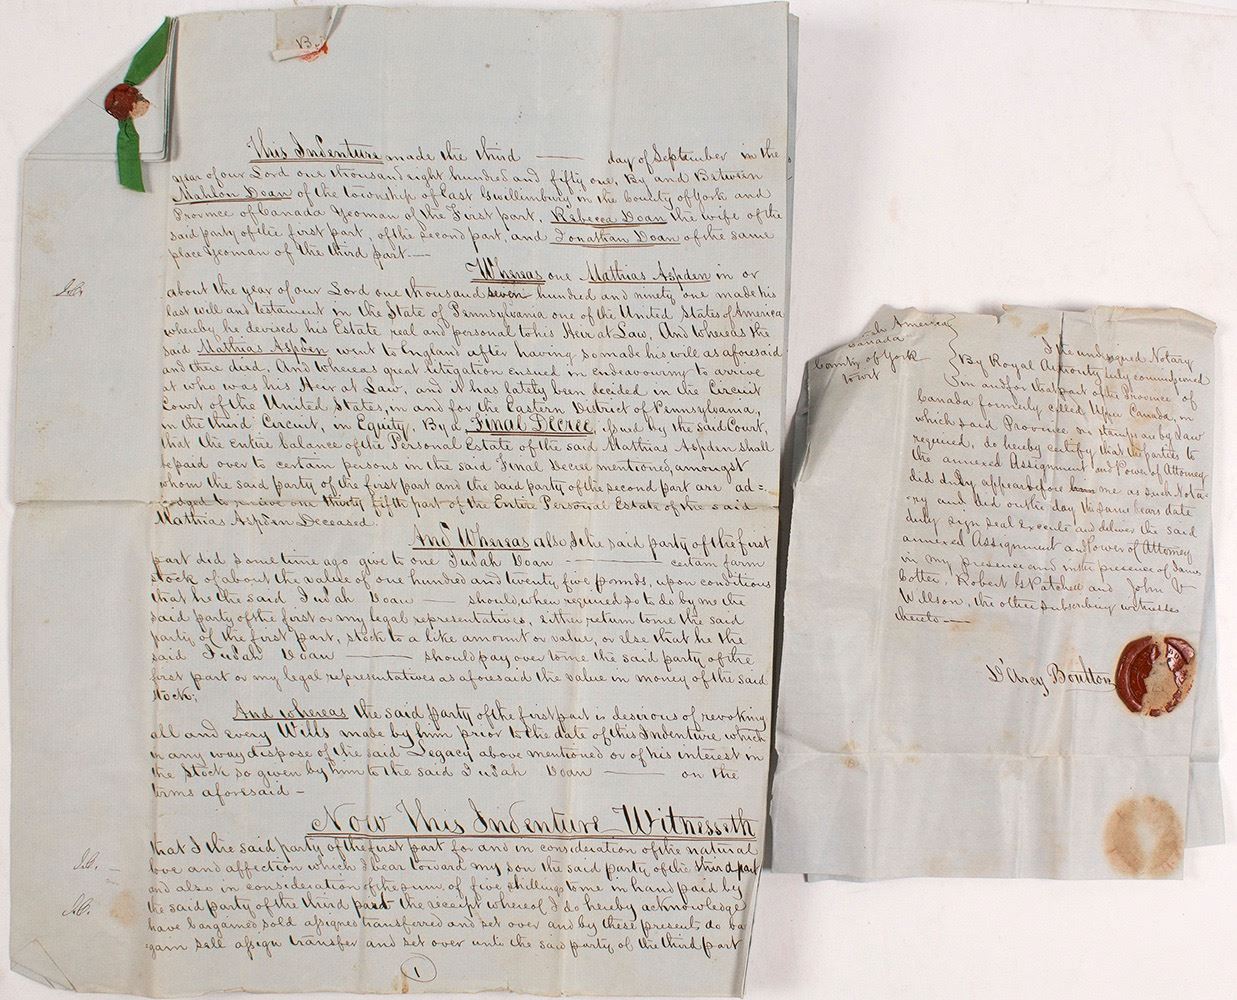 B.
This Indenture made the third — day of September in the
year of our Lord one thousand eight hundred and fifty one, By and Between
Mahlon Doan of the township of East Gwillimbury in the County of York and
Province of Canada Yeoman of the First part, Rebecca Doan the wife of the
said party of the first part, of the second part, and Jonathan Doan of the same
place Yeoman of the third part.—
Whereas one Mathias Aspden in or
about the year of our Lord one thousand seven hundred and ninety one made his
last will and testament in the State of Pennsylvania one of the United States of America
whereby he devised his Estate real and personal to his Heir at Law. And whereas the
said Mathias Aspden went to England after having so made his will as aforesaid
and there died, And whereas great litigation ensued in endeavouring to arrive
at who was his Heir at Law, and it has lately been decided in the Circuit
Court of the United States, in and for the Eastern District of Pennsylvania,
in the third Circuit, in Equity. By a Final Decree issued by the said Court,
that the Entire balance of the Personal Estate of the said Mathias Aspden shall
be paid over to certain persons in the said Final Decree mentioned, amongst
whom the said party of the first part and the said party of the second part are ad=
judged to receive one thirty fifth part of the Entire Personal Estate of the said
Mathias Aspden Deceased.
And Whereas also I the said party of the first
part did some time ago give to one Judah Doan — certain farm
stock of about the value of one hundred and twenty five pounds, upon conditions
that he the said Judah Doan — should, when required so to do by me the
said party of the first or my legal representatives, either return to me the said
party of the first part, stock to a like amount or value, or else that he the
said Judah Doan — should pay over to me the said party of the
first part or my legal representatives as aforesaid the value in money of the said
stock;
And whereas the said party of the first part is desirous of revoking
all and every Wills made by him prior to the date of this Indenture which
in any way dispose of the said Legacy above mentioned or of his interest in
the Stock so given by him to the said Judah Doan — on the
terms aforesaid —
Now This Indenture Witnesseth
that I the said party of the first part for and in consideration of the natural
love and affection which I bear toward my son the said party of the third part
and also in consideration of the sum of five shillings to me in hand paid by
the said party of the third part the receipt whereof I do hereby acknowledge
have bargained sold assigned transferred and set over and by these presents do ba
gain sell assign transfer and set over unto the said party of the third part
1
America
Canada
County of York
to wit
I the undersigned Notary
By Royal Authority duly commissioned
in and for that part of the Province of
Canada formerly called Upper Canada,
which said Province no stamps are by law
required, do hereby certify that the parties to
the annexed Assignment and Power of Attorney
did duly appear before me as such Nota-
ry and did on the day the same bears date
duly sign seal execute and deliver the said
annexed Assignment and Power of Attorney
in my presence and in the presence of James
Cotter, Robert H Patched and John
Willson, the other subscribing witnesses
thereto —
D'Arcy Boulton